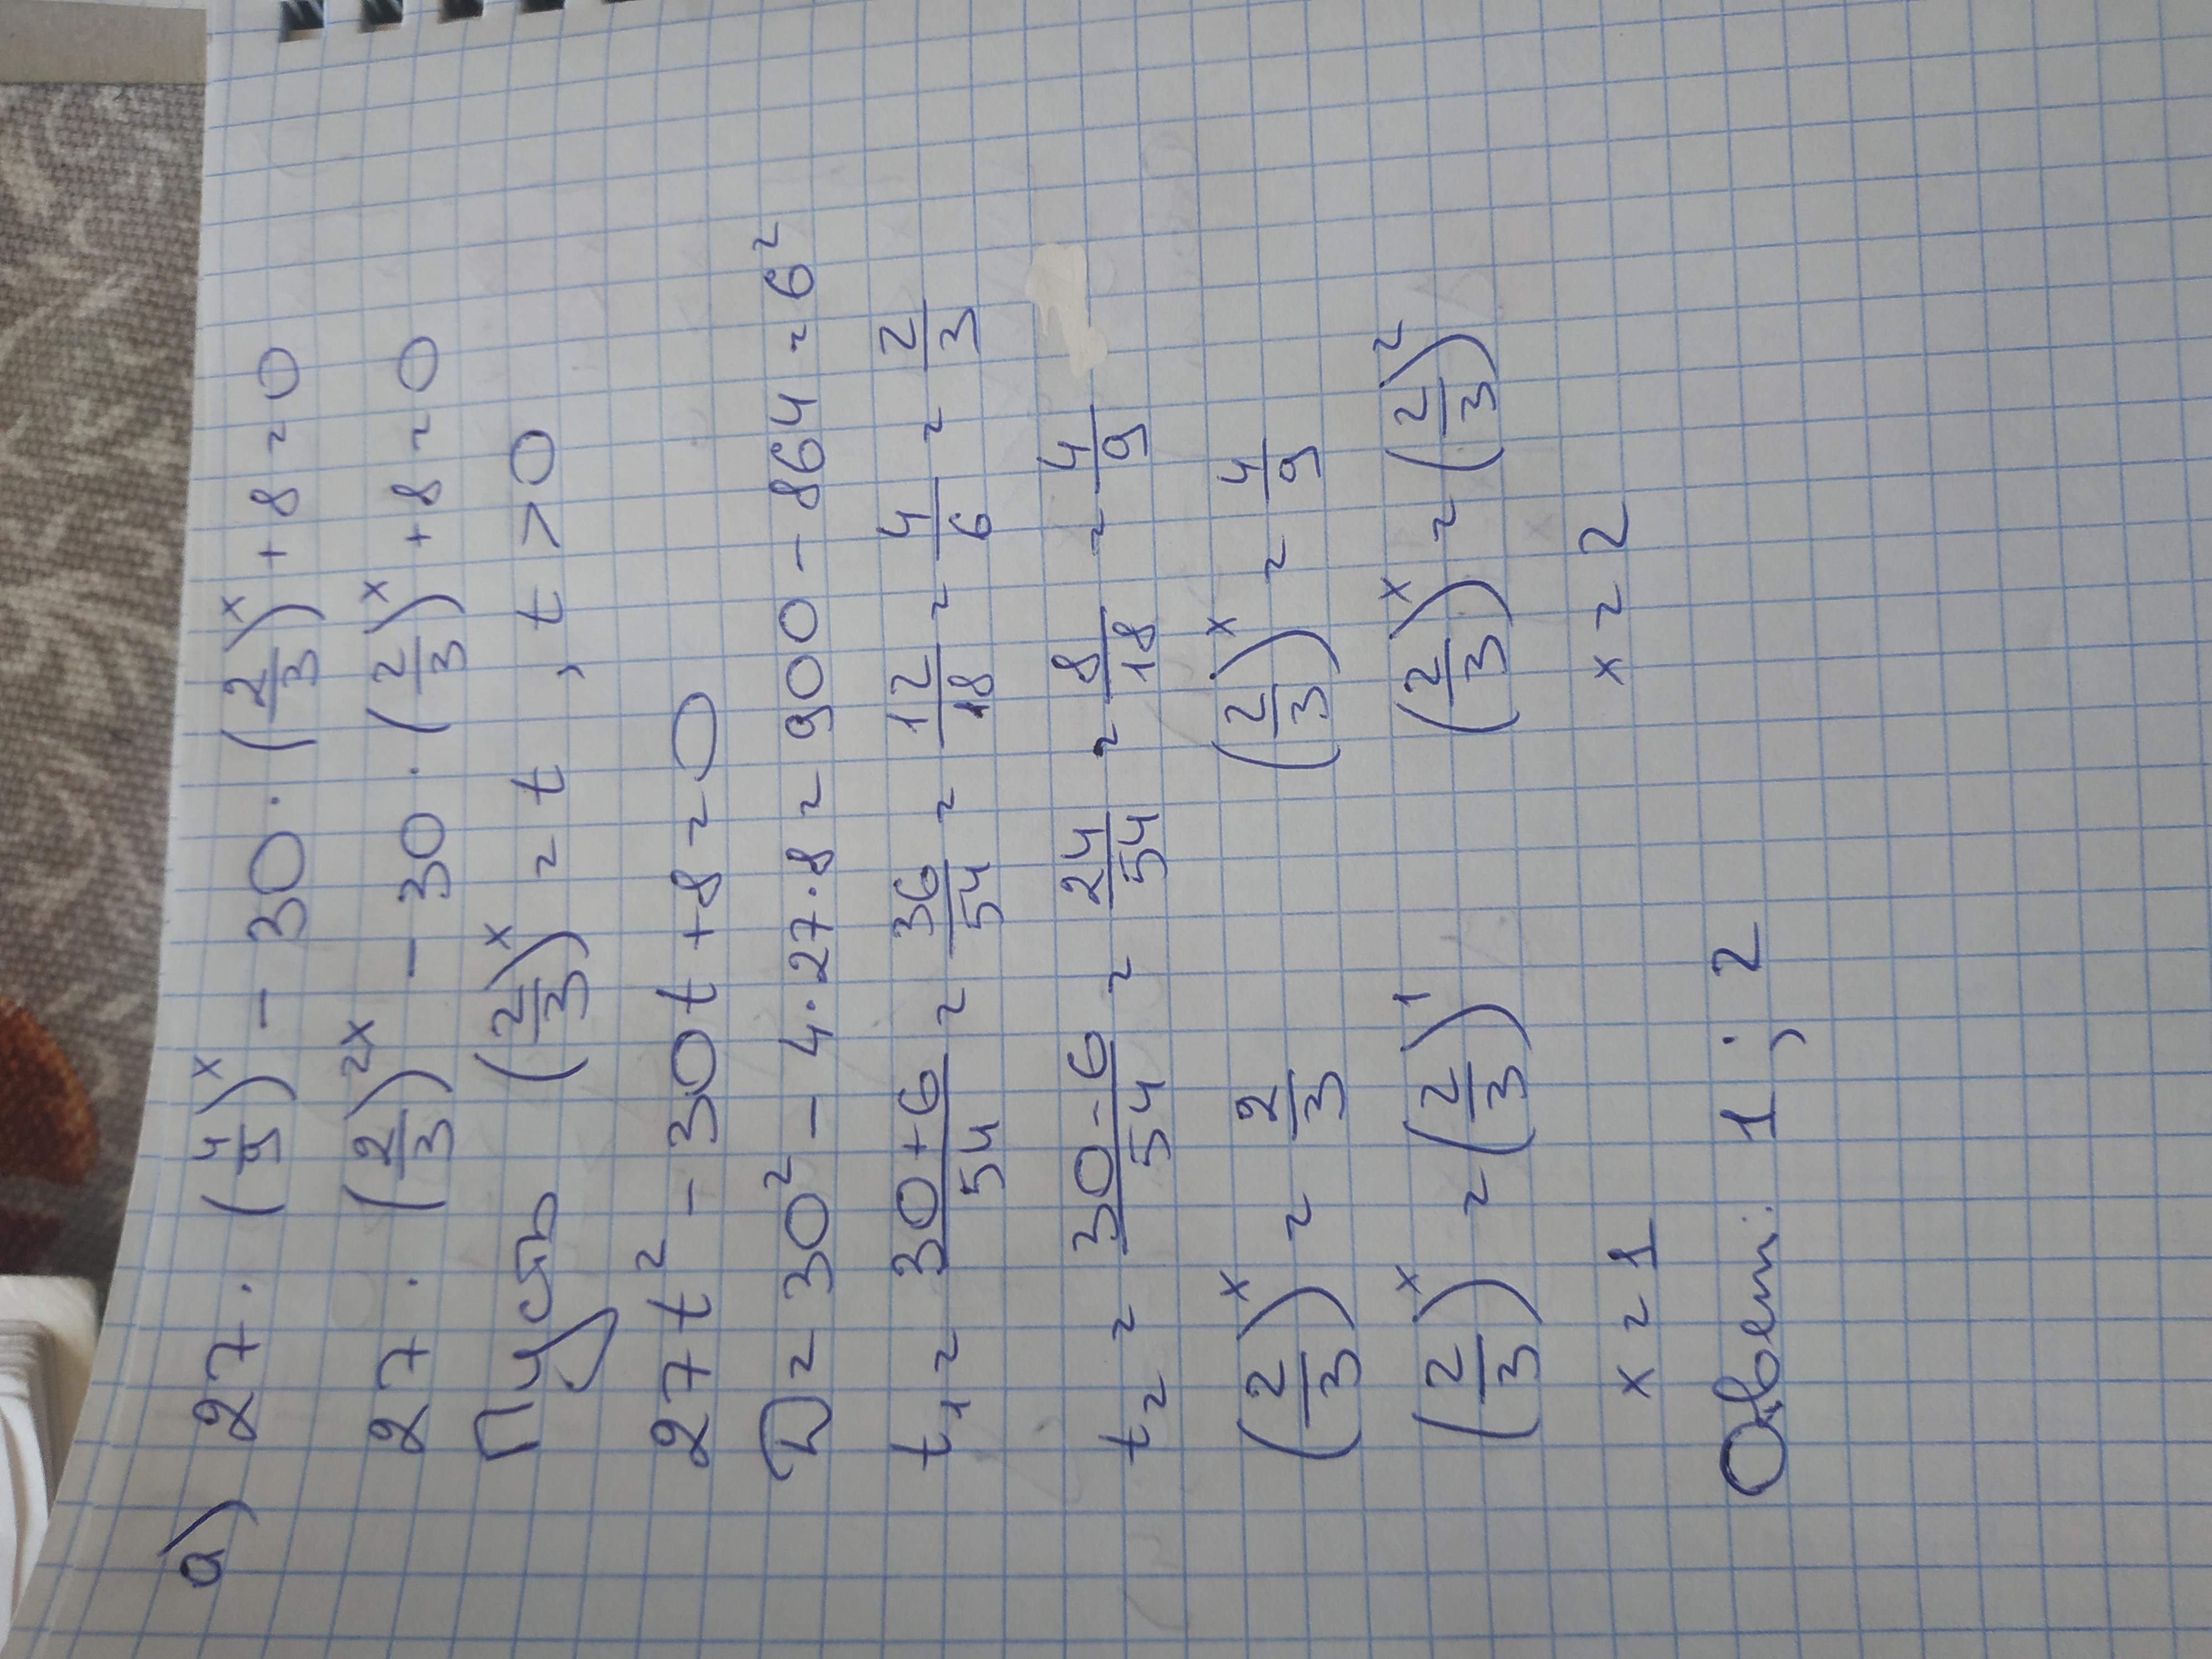 а) 27 · (4/9)^x − 30 · (2/3)^x + 8 = 0
27 · (2/3)^2x − 30 · (2/3)^x + 8 = 0
Пусть (2/3)^x = t , t > 0
27t² − 30t + 8 = 0
D = 30² − 4·27·8 = 900 − 864 = 6²
t₁ = (30+6)/54 = 36/54 = 12/18 = 4/6 = 2/3
t₂ = (30-6)/54 = 24/54 = 8/18 = 4/9
(2/3)^x = 2/3 (2/3)^x = 4/9
(2/3)^x = (2/3)^1 (2/3)^x = (2/3)^2
x = 1 x = 2
Ответ: 1 ; 2